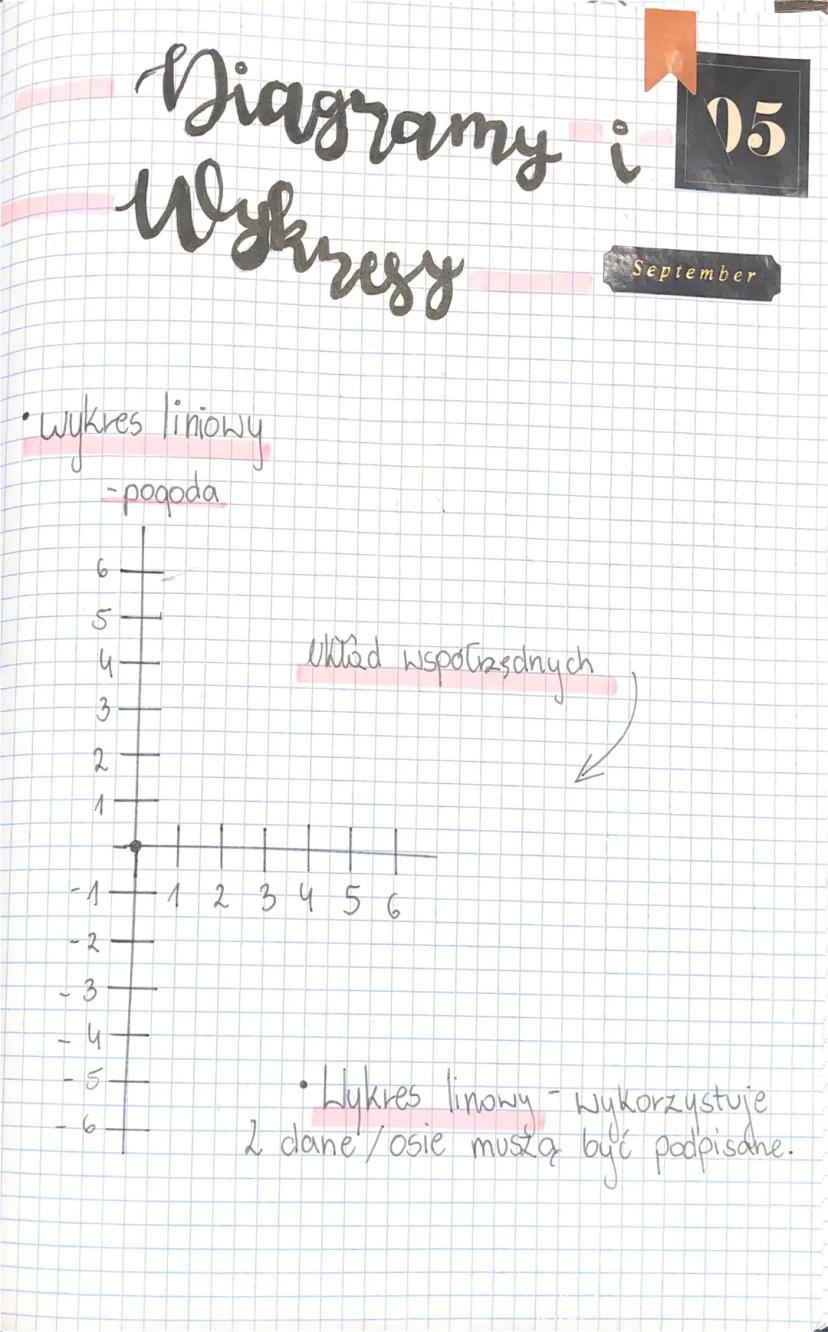 Diagramy i
05
Wykresy
September
• wykres liniowy
- pogoda
6
5
układ współrzędnych
4
3
2
1
-1 1 2 3 4 5 6
-2
-3
-4
-5
• Wykres linowy - wykorzystuje
-6
2 dane/osie muszą być podpisane.